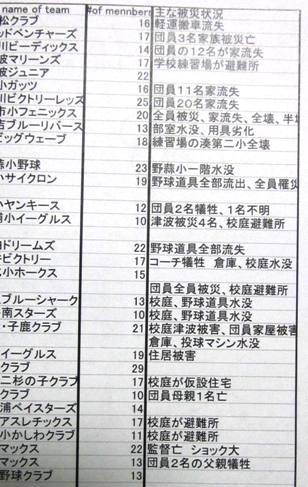 name of team #of mennbers 主な被災状況
松クラブ 16 軽運搬車流失
ッドベンチャーズ 17 団員3名家族被災亡
川ビーディックス 14 団員の12名が家流失
波マリーンズ 17 学校練習場が避難所
波ジュニア 22
小ガッツ 16 団員11名家流失
川ビクトリーレッズ 25 団員20名家流失
市小フェニックス 20 全員被災、家流失、全壊、半
ブルーリバース 13 部室水没、用具劣化
ビッグウェーブ 18 練習場の湊第二小全壊
蒜小野球 23 野蒜小一階水没
小サイクロン 19 野球道具全部流出、全員罹災
ハヤンキース 12 団員2名犠牲、1名不明
浦小イーグルス 10 津波被災4名、校庭避難所
ドリームズ 22 野球道具全部流失
ビクトリー 17 コーチ犠牲 倉庫、校庭水没
小ホークス 15
団員全員被災、校庭避難所
ブルーシャーク 13 校庭、野球道具水没
南スターズ 10 校庭、野球道具水没
・子鹿クラブ 21 校庭津波被害、団員家屋被害
倉庫、投球マシン水没
イーグルス 19 住居被害
クラブ 29
二杉の子クラブ 17 校庭が仮設住宅
クラブ 10 団員母親1名亡
浦ベイスターズ 14
アスレチックス 17 校庭が避難所
小かしわクラブ 11 校庭が避難所
マックス 22 監督亡 ショック大
マックス 13 団員2名の父親犠牲
野球クラブ 13